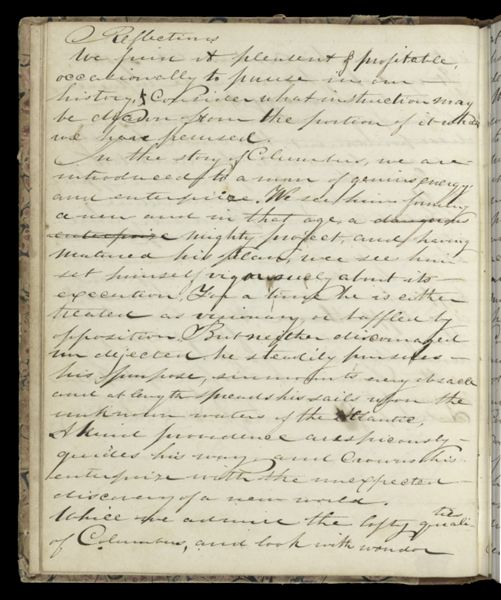 Reflections
We finn it plesent & profitable,
occationally to pause in our
history, & Consider what instruction may
be drawn from the portion of it which
we have perused.
In the story of Columbus, we are
introduced to a man of genius energy
and enterprize. We see him forming
a new and in that age, a dangerous
enterprize mighty project, and having
matured his plan, we see him
set himself vigorously about its
execution. For a time he is either
treated as visionary or baffled by
opposition. But neither discouraged
nor dejected he steadily pursues
his purpose, surmounts every obsacle
and at length spreads his sails upon the
unknown waters of the Atlantic,
A kind providence auspiciously
guides his way, and crowns his
enterprize with the unexpected
discovery of a new world.
While we admire the lofty qualities
of Columbus, and look with wondor